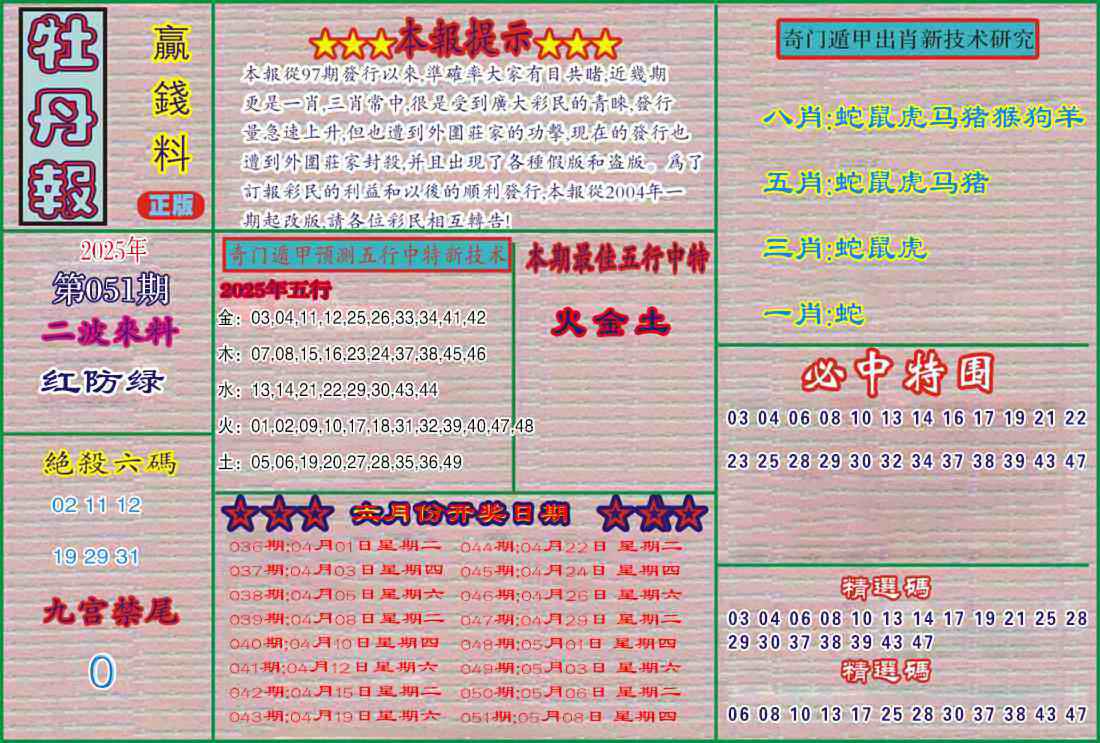 牡丹報
贏錢料
正版
★★★本報提示★★★
本報從97期發行以來,準確率大家有目共睹,近幾期
更是一肖,三肖常中,很是受到廣大彩民的青睞,發行
量急速上升,但也遭到外圍莊家的功擊,現在的發行也
遭到外圍莊家封殺,并且出現了各種假版和盜版。爲了
訂報彩民的利益和以後的順利發行,本報從2004年一
期起改版,請各位彩民相互轉告!
奇门遁甲出肖新技术研究
八肖:蛇鼠虎马猪猴狗羊
五肖:蛇鼠虎马猪
三肖:蛇鼠虎
一肖:蛇
2025年
第051期
二波來料
红防绿
奇门遁甲预测五行中特新技术
2025年五行
金：03,04,11,12,25,26,33,34,41,42
木：07,08,15,16,23,24,37,38,45,46
水：13,14,21,22,29,30,43,44
火：01,02,09,10,17,18,31,32,39,40,47,48
土：05,06,19,20,27,28,35,36,49
本期最佳五行中特
火金土
必中特围
03 04 06 08 10 13 14 16 17 19 21 22
23 25 28 29 30 32 34 37 38 39 43 47
絕殺六碼
02 11 12
19 29 31
九宫禁尾
0
☆☆☆ 六月份开奖日期 ☆☆☆
036期:04月01日星期二 044期:04月22日 星期二
037期:04月03日星期四 045期:04月24日 星期四
038期:04月05日星期六 046期:04月26日 星期六
039期:04月08日星期二 047期:04月29日 星期二
040期:04月10日星期四 048期:05月01日 星期四
041期:04月12日星期六 049期:05月03日 星期六
042期:04月15日星期二 050期:05月06日 星期二
043期:04月19日星期六 051期:05月08日 星期四
精選碼
03 04 06 08 10 13 14 17 19 21 25 28
29 30 37 38 39 43 47
精選碼
06 08 10 13 17 25 28 30 37 38 43 47